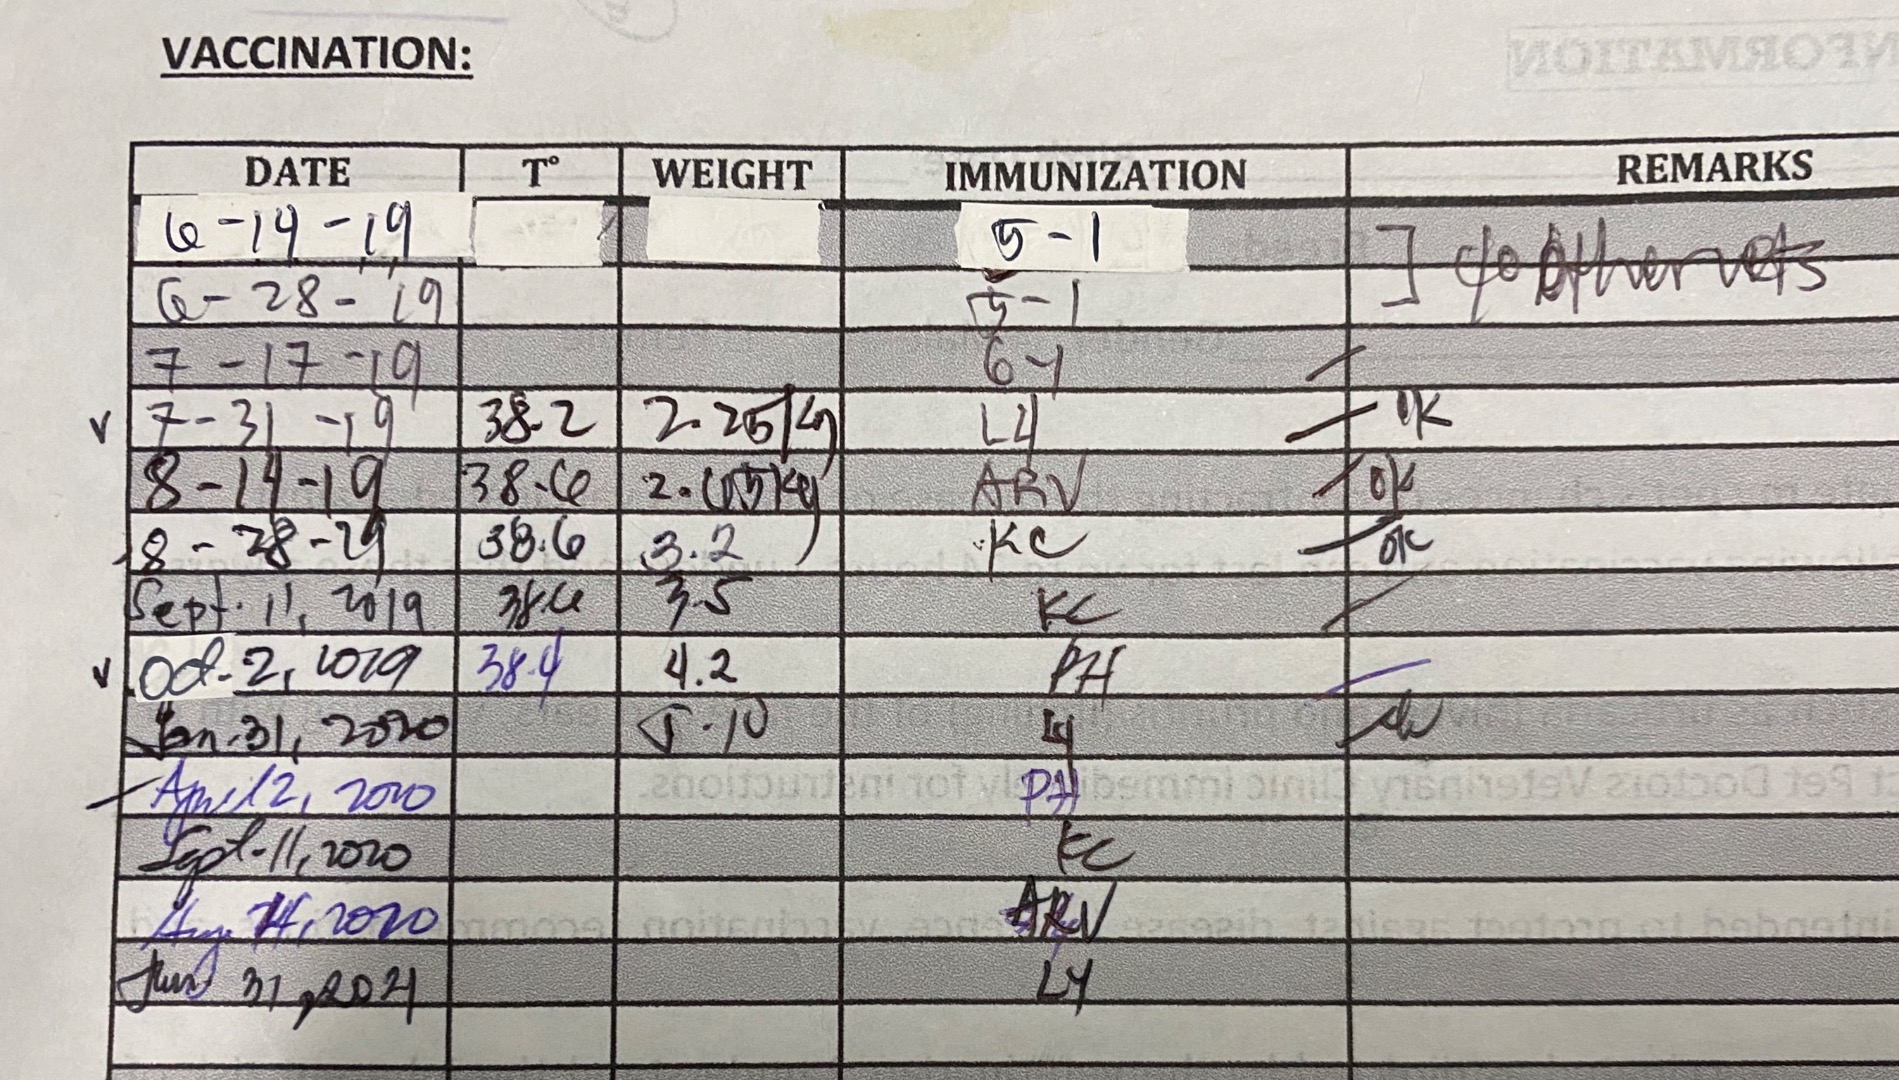 VACCINATION:
DATE T° WEIGHT IMMUNIZATION REMARKS
6-14-19 5-1 ] c/o other vets
6-28-19 5-1
7-17-19 6-1
7-31-19 38.2 2.25kg L4 OK
8-14-19 38.6 ARV OK
8-28-29 38.6 3.2 KC OK
Sept. 11, 2019 38.6 3.5 KC
Oct. 2, 2019 38.4 4.2 PH
Jan. 31, 2020 5.10 L4
April 2, 2020 PH
Sept. 11, 2020 KC
Aug. 14, 2020 ARV
31, 2021 LY